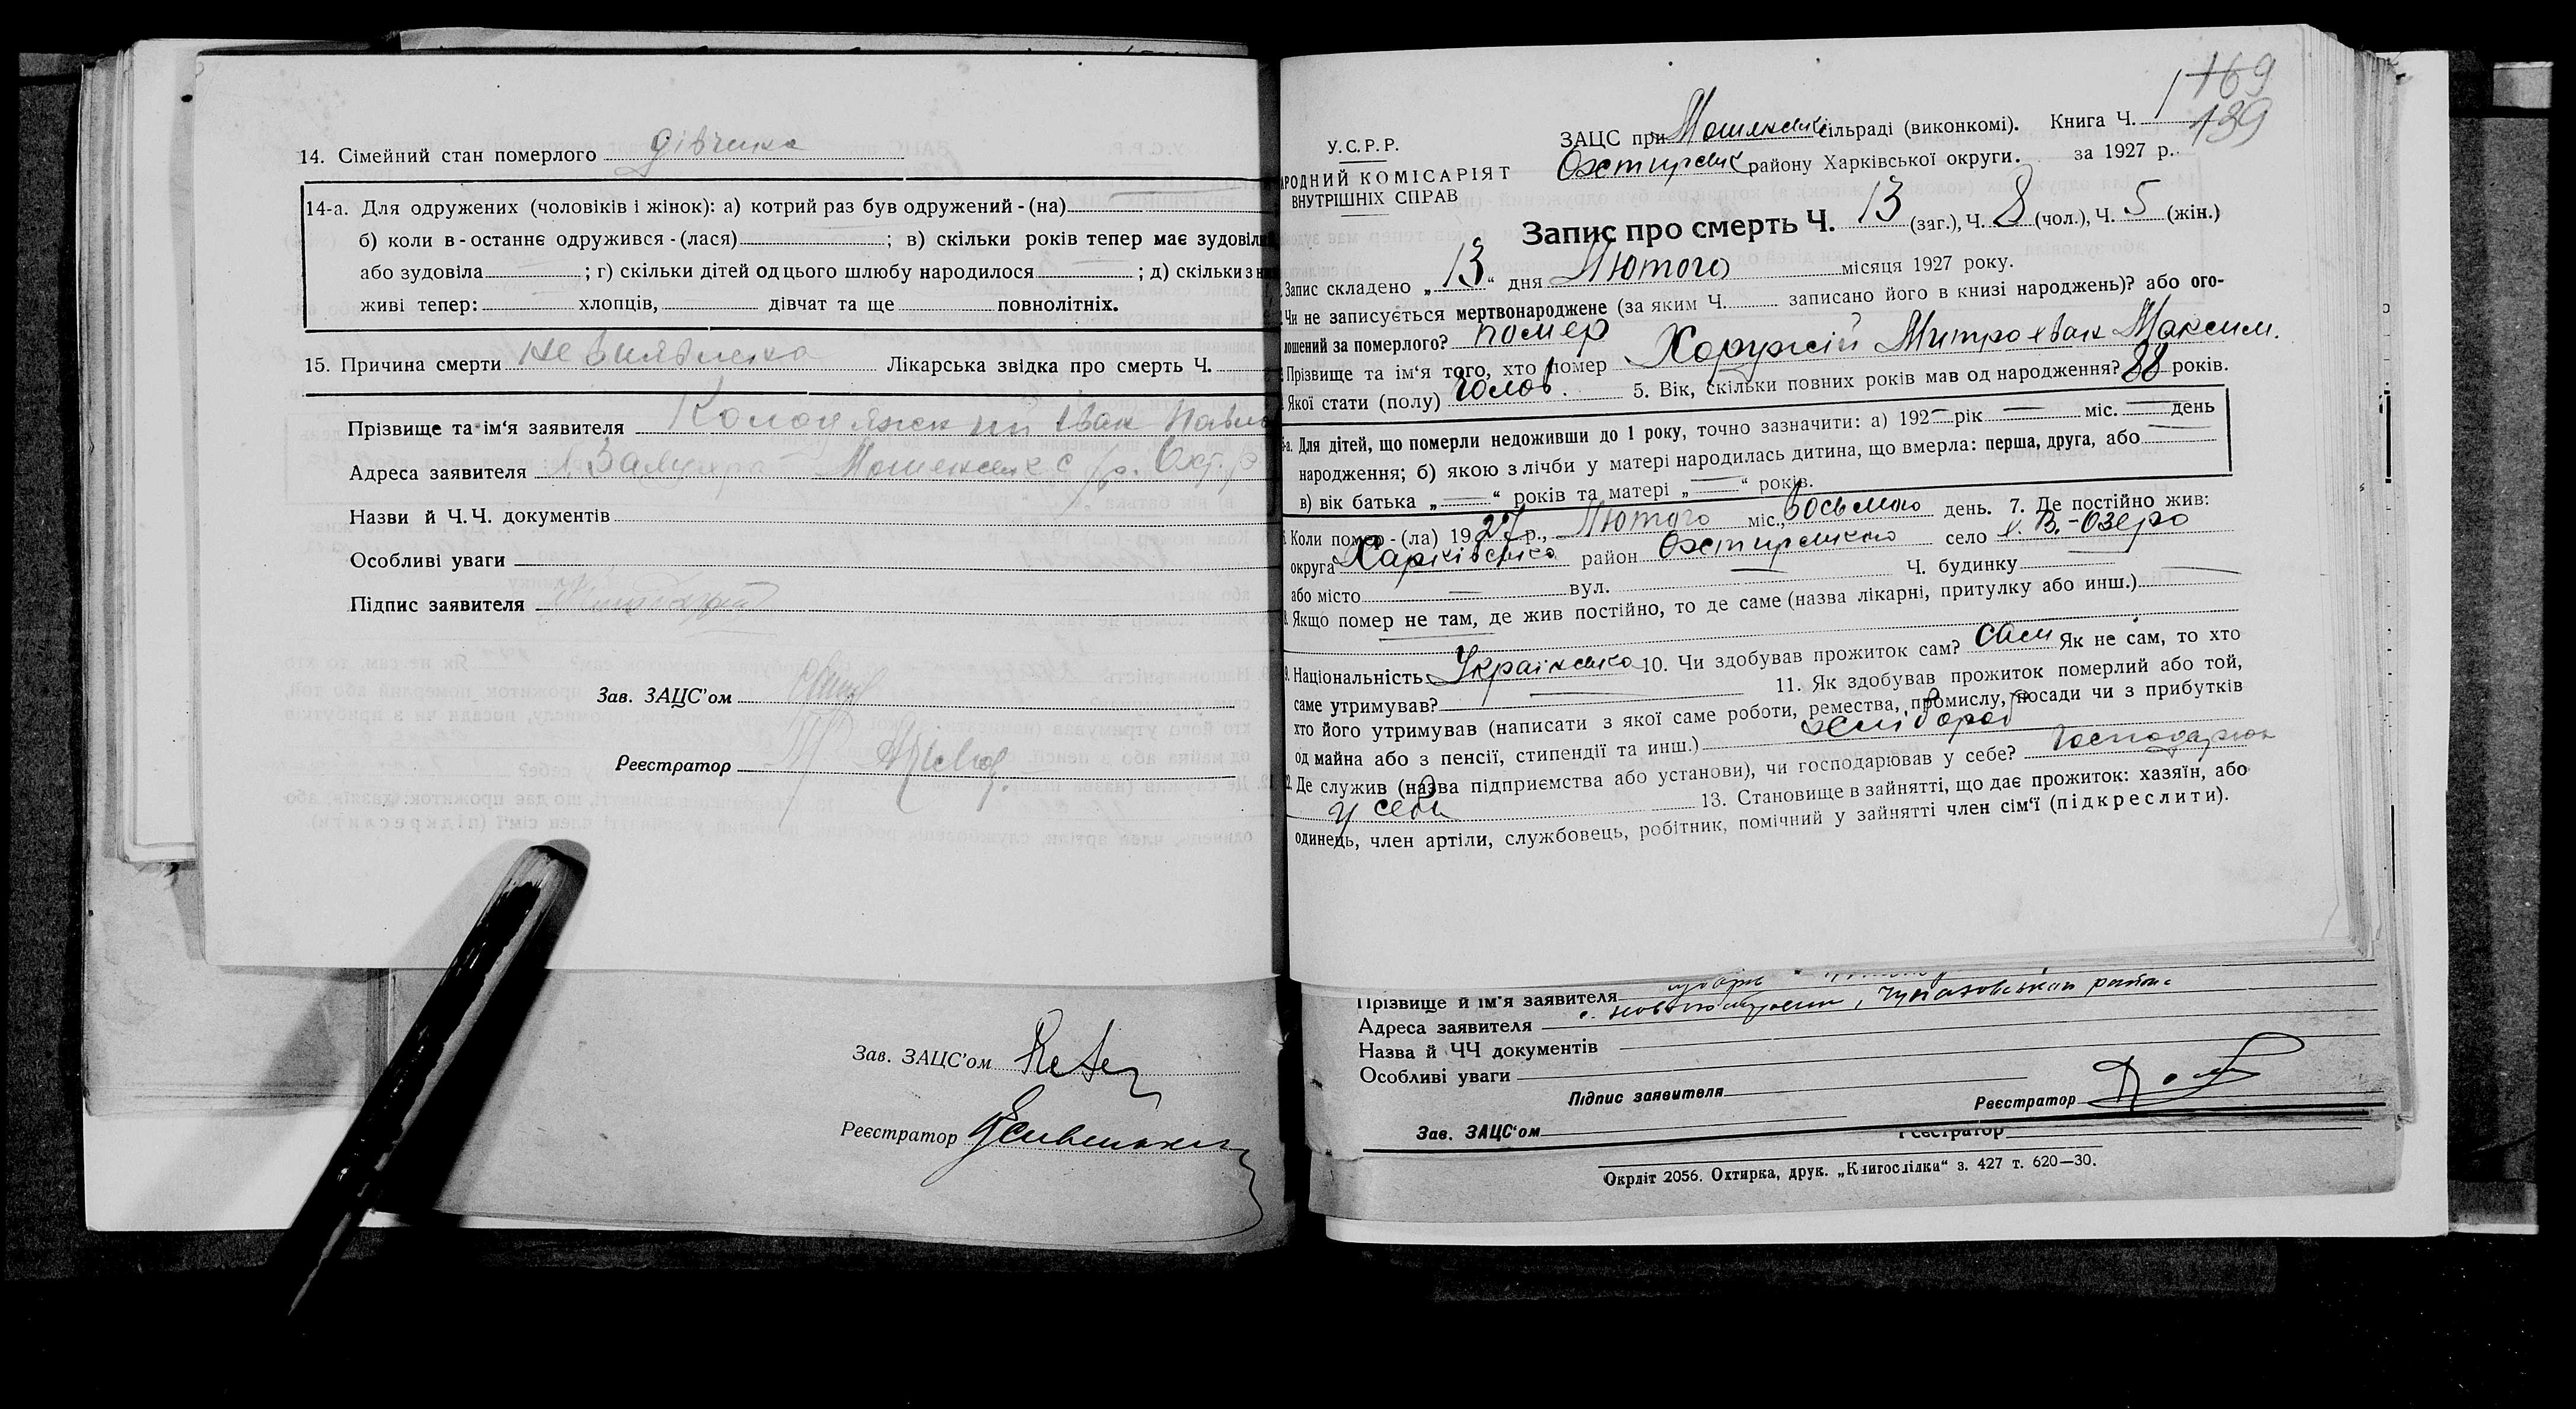 14. Сімейний стан померлого дівчина
14-а. Для одружених (чоловіків і жінок): а) котрий раз був одружений - (на)
б) коли в - останнє одружився - (лася) ; в) скільки років тепер має
або зудовіла ; г) скільки дітей од цього шлюбу народилося ; д) скільки з
живі тепер: хлопців, дівчат та ще повнолітніх.
15. Причина смерти Лікарська звідка про смерть Ч.
Прізвище та ім'я заявителя Колодяжний Іван
Адреса заявителя
Назви й Ч.Ч. документів
Особливі уваги
Підпис заявителя
Зав. ЗАЦС'ом
Реєстратор
Зав. ЗАЦС'ом
Реєстратор
169
139
У.С.Р.Р.
НАРОДНИЙ КОМІСАРІЯТ
ВНУТРІШНІХ СПРАВ
ЗАЦС при сільраді (виконкомі). Книга Ч. 1
Охтирськ району Харківської округи. за 1927 р.
Запис про смерть Ч. 13 (заг.), Ч. 8 (чол.), Ч. 5 (жін.)
Запис складено „ 13 “ дня Лютого місяця 1927 року.
Чи не записується мертвонароджене (за яким Ч. записано його в книзі народжень)? або ого-
лошений за померлого? помер
Прізвище та ім'я того, хто помер Хоружій Максим.
Якої стати (полу) чолов. 5. Вік, скільки повних років мав од народження? 88 років.
5-а. Для дітей, що померли недоживши до 1 року, точно зазначити: а) 192 — рік — міс. — день
народження; б) якою з лічби у матері народилась дитина, що вмерла: перша, друга, або
в) вік батька „ — “ років та матері „ — “ років.
Коли помер - (ла) 1927 р., Лютого міс., Восьмого день. 7. Де постійно жив:
округа Харківська район Охтирського село х. В.-Озеро
або місто — вул. — Ч. будинку —
8. Якщо помер не там, де жив постійно, то де саме (назва лікарні, притулку або инш.)
9. Національність Українська 10. Чи здобував прожиток сам? сам Як не сам, то хто
саме утримував? — 11. Як здобував прожиток померлий або той,
хто його утримував (написати з якої саме роботи, ремества, промислу, посади чи з прибутків
од майна або з пенсії, стипендії та инш.) хлібороб
12. Де служив (назва підприємства або установи), чи господарював у себе?
у себе 13. Становище в зайнятті, що дає прожиток: хазяїн, або
одинець, член артіли, службовець, робітник, помічний у зайнятті член сім'ї (підкреслити).
Прізвище й ім'я заявителя
Адреса заявителя
Назва й ЧЧ документів
Особливі уваги
Підпис заявителя Реєстратор
Зав. ЗАЦС'ом Реєстратор
Окрліт 2056. Охтирка, друк. „Книгоспілки“ з. 427 т. 620—30.